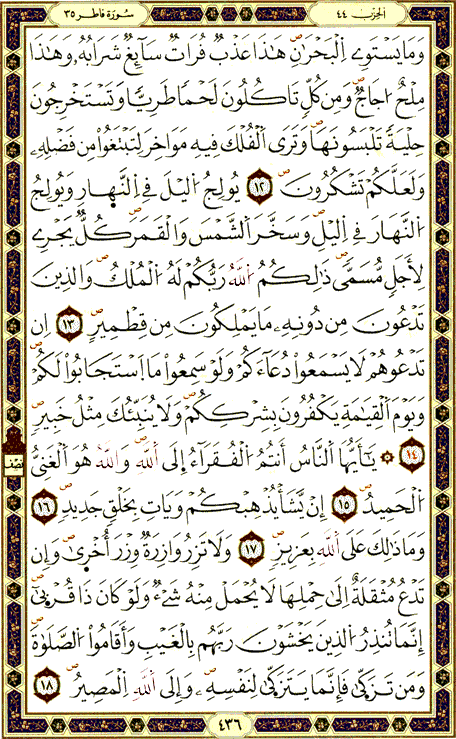 الحزب ٤٤ سورة فاطر ٣٥
وَمَا يَسْتَوِے اِ۬لْبَحْرَٰنِ هَٰذَا عَذْبٞ فُرَاتٞ سَآئِغٞ شَرَابُهُۥ وَهَٰذَا
مِلْحٌ ا۟جَاجٞ وَمِن كُلّٖ تَاكُلُونَ لَحْماٗ طَرِيّاٗ وَتَسْتَخْرِجُونَ
حِلْيَةٗ تَلْبَسُونَهَا وَتَرَى اَ۬لْفُلْكَ فِيهِ مَوَاخِرَ لِتَبْتَغُواْ مِن فَضْلِهِۦ
وَلَعَلَّكُمْ تَشْكُرُونَ ١٢ يُولِجُ اُ۬ليْلَ فِے اِ۬لنَّه۪ارِ وَيُولِجُ
اُ۬لنَّهَارَ فِے اِ۬ليْلِ وَسَخَّرَ اَ۬لشَّمْسَ وَالْقَمَرَ كُلّٞ يَجْرِے
لِأَجَلٖ مُّسَمّىٗ ذَٰلِكُمُ اُ۬للَّهُ رَبُّكُمْ لَهُ اُ۬لْمُلْكُ وَالذِينَ
تَدْعُونَ مِن دُونِهِۦ مَا يَمْلِكُونَ مِن قِطْمِيرٍ ١٣ اِن
تَدْعُوهُمْ لَا يَسْمَعُواْ دُعَآءَكُمْ وَلَوْ سَمِعُواْ مَا اَ۪سْتَجَابُواْ لَكُمْ
وَيَوْمَ اَ۬لْقِيَٰمَةِ يَكْفُرُونَ بِشِرْكِكُمْ وَلَا يُنَبِّئُكَ مِثْلُ خَبِيرٖ
١٤ يَٰٓأَيُّهَا اَ۬لنَّاسُ أَنتُمُ اُ۬لْفُقَرَآءُ اِلَى اَ۬للَّهِ وَاللَّهُ هُوَ اَ۬لْغَنِيُّ
نصف
اُ۬لْحَمِيدُ ١٥ إِنْ يَّشَأْ يُذْهِبْكُمْ وَيَاتِ بِخَلْقٖ جَدِيدٖ ١٦
وَمَا ذَٰلِكَ عَلَى اَ۬للَّهِ بِعَزِيزٖ ١٧ وَلَا تَزِرُ وَازِرَةٞ وِزْرَ أُخْر۪يٰ وَإِن
تَدْعُ مُثْقَلَةٌ اِلَىٰ حِمْلِهَا لَا يُحْمَلْ مِنْهُ شَےْءٞ وَلَوْ كَانَ ذَا قُرْب۪يٰٓ
إِنَّمَا تُنذِرُ اُ۬لذِينَ يَخْشَوْنَ رَبَّهُم بِالْغَيْبِ وَأَقَامُواْ اُ۬لصَّلَوٰةَ
وَمَن تَزَكّ۪يٰ فَإِنَّمَا يَتَزَكّ۪يٰ لِنَفْسِهِۦ وَإِلَى اَ۬للَّهِ اِ۬لْمَصِيرُ ١٨
٤٣٦